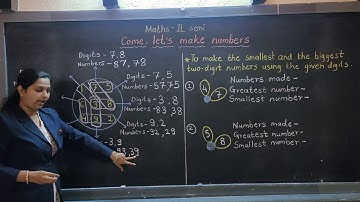 Maths-II semi
Come, let's make numbers
Digits - 7,8
Numbers - 87,78
Digits - 7,5
Numbers - 57,75
Digits - 3,8
Numbers - 83,38
Digits - 9,2
Numbers - 92,29
- 3,9
93,39
7 5
3 8
9 2
* To make the smallest and the biggest
two-digit numbers using the given digits.
① 4 7
Numbers made -
Greatest number -
Smallest number -
② 5 8
Numbers made -
Greatest number -
Smallest number -